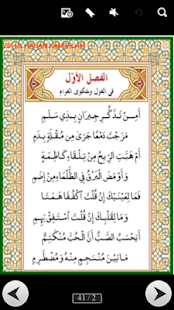 الفصل الأوّل
في الغزل وشكوى الغرام
أَمِنْ تَذَكُّرِ جِيرَانٍ بِذِي سَلَمِ
مَزَجْتَ دَمْعًا جَرَى مِنْ مُقْلَةٍ بِدَمِ
أَمْ هَبَّتِ الرِّيحُ مِنْ تِلْقَاءِ كَاظِمَةٍ
وَأَوْمَضَ الْبَرْقُ فِي الظَّلْمَاءِ مِنْ إِضَمِ
فَمَا لِعَيْنَيْكَ إِنْ قُلْتَ اكْفُفَا هَمَتَا
وَمَا لِقَلْبِكَ إِنْ قُلْتَ اسْتَفِقْ يَهِمِ
أَيَحْسَبُ الصَّبُّ أَنَّ الْحُبَّ مُنْكَتِمٌ
مَا بَيْنَ مُنْسَجِمٍ مِنْهُ وَمُضْطَرِمِ
41 / 2